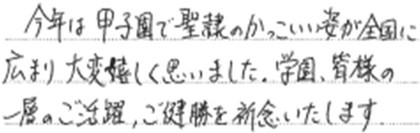 今年は甲子園で聖隷のかっこいい姿が全国に
広まり大変嬉しく思いました。学園、皆様の
一層のご活躍,ご健勝を祈念いたします.